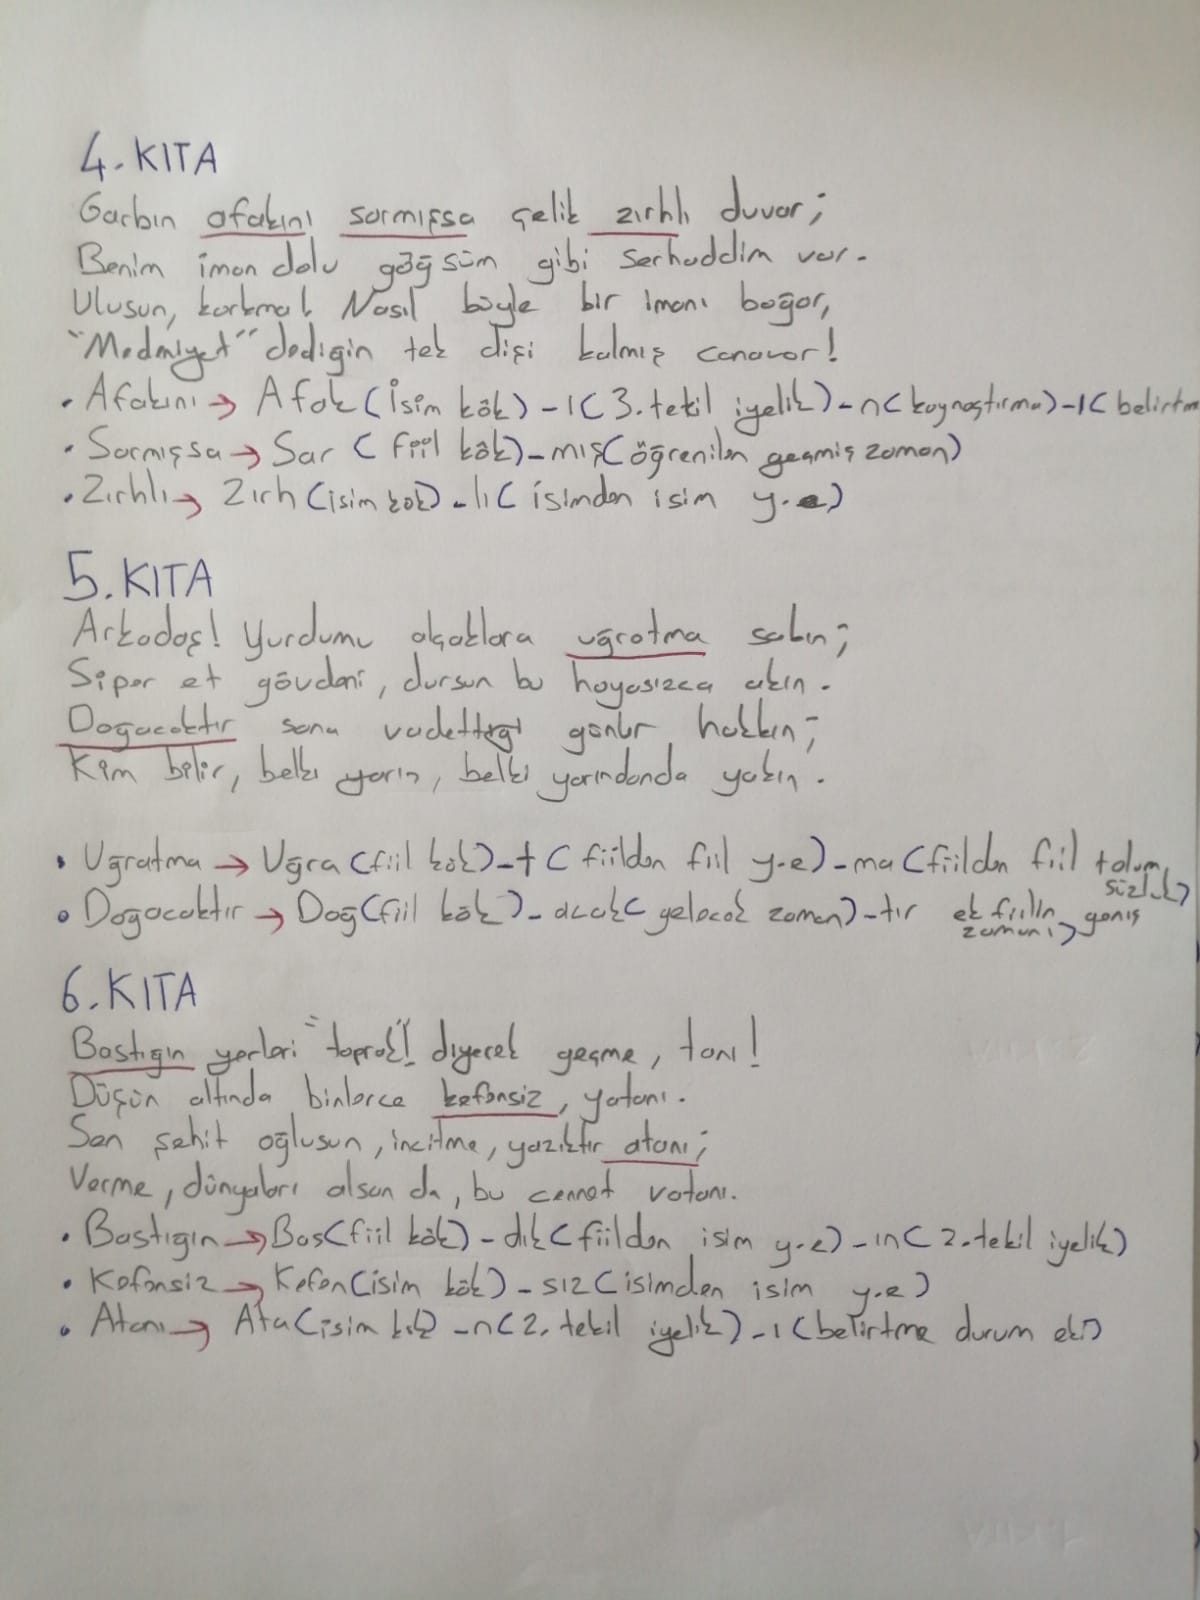 4. KITA
Garbın afakını sarmışsa çelik zırhlı duvar;
Benim iman dolu göğsüm gibi serhaddim var.
Ulusun, korkma! Nasıl böyle bir imanı boğar,
"Medeniyet" dediğin tek dişi kalmış canavar!
• Afakını → Afak (isim kök) - ı (3. tekil iyelik) - n (kaynaştırma) - ı (belirtm
• Sarmışsa → Sar (fiil kök) - mış (öğrenilen geçmiş zaman)
• Zırhlı → Zırh (isim kök) - lı (isimden isim y.e)
5. KITA
Arkadaş! Yurdumu alçaklara uğratma sakın;
Siper et gövdeni, dursun bu hayasızca akın.
Doğacaktır sana vadettiği günler hakkın;
Kim bilir, belki yarın, belki yarından da yakın.
• Uğratma → Uğra (fiil kök) - t (fiilden fiil y.e) - ma (fiilden fiil olum
suzluk)
• Doğacaktır → Doğ (fiil kök) - acak (gelecek zaman) - tır ek fiilin geniş
zamanı)
6. KITA
Bastığın yerleri "toprak!" diyerek geçme, tanı!
Düşün altında binlerce kefensiz, yatanı.
Sen şehit oğlusun, incitme, yazıktır atanı;
Verme, dünyaları alsan da, bu cennet vatanı.
• Bastığın → Bas (fiil kök) - dık (fiilden isim y.e) - ın (2. tekil iyelik)
• Kefensiz → Kefen (isim kök) - sız (isimden isim y.e)
• Atanı → Ata (isim kök) - n (2. tekil iyelik) - ı (belirtme durum eki)